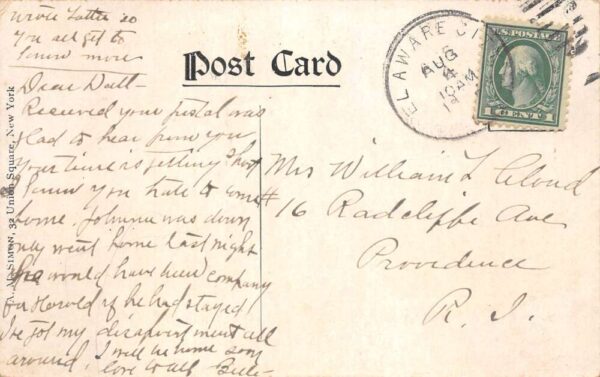 wrote Lottie so
you all get to
know more
Post Card
DELAWARE CITY
AUG
10 AM
U.S. POSTAGE
1 CENT 1
A. M. SIMON, 32 Union Square, New York
Dear Dutt-
Received your postal was
glad to hear from you
Your time is getting short
I know you hate to come
home. Johnnie was down
only went home last night
He would have been company
for Harold if he had stayed
I've got my disapointment all
around. I will be home soon
love to all
Mrs William L Cloud
# 16 Radcliffe Ave
Providence
R. I.